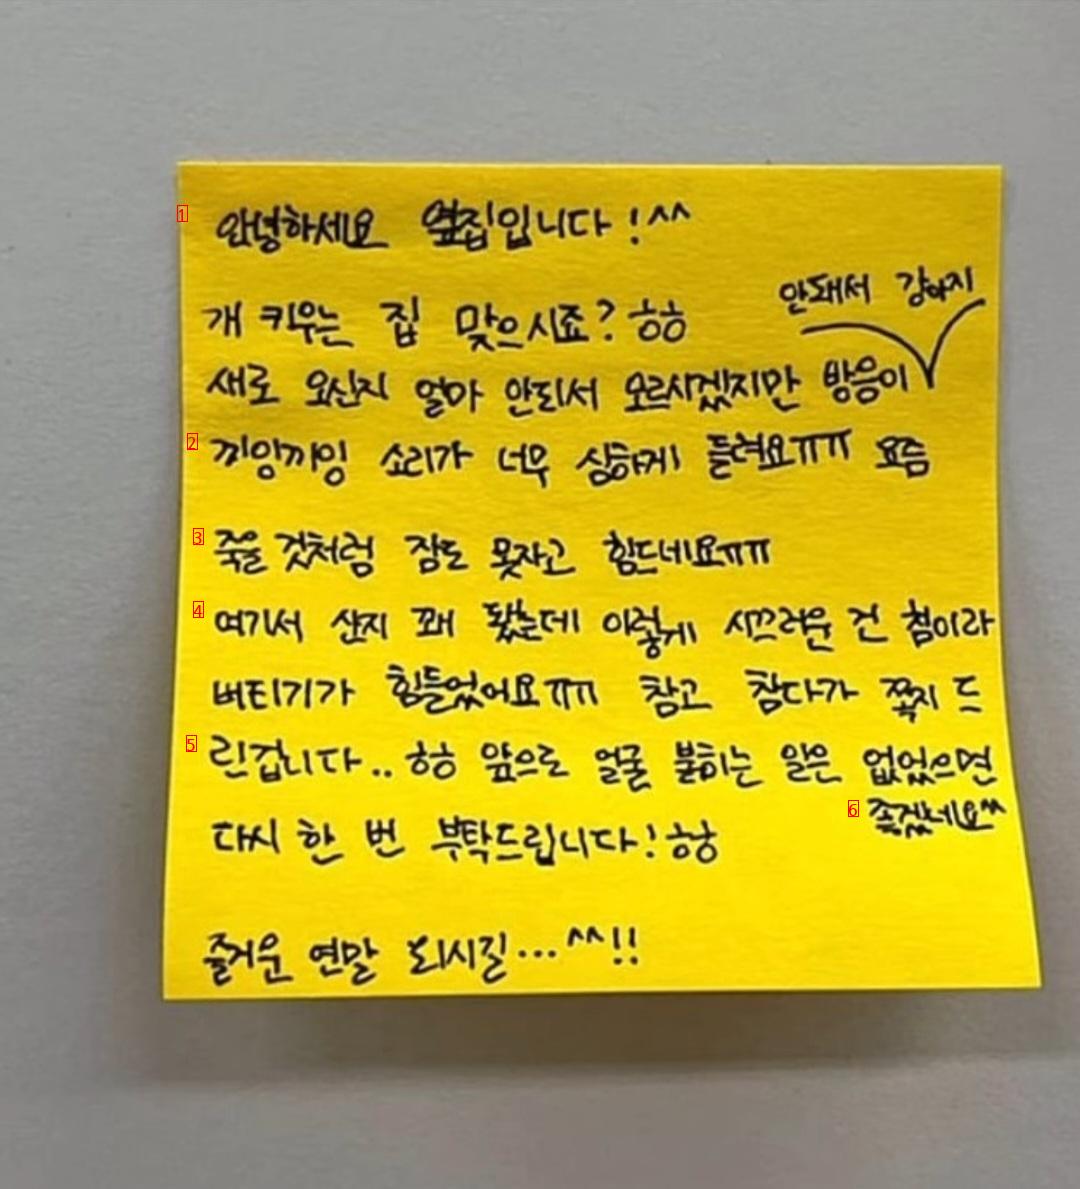 안녕하세요 옆집입니다!^^
개 키우는 집 맞으시죠? ㅎㅎ
새로 오신지 얼마 안되서 모르시겠지만 방음이 안돼서 강아지
끼잉끼잉 소리가 너무 심하게 들려요ㅠㅠ 요즘
죽을 것처럼 잠도 못자고 힘드네요ㅠㅠ
여기서 산지 꽤 됐는데 이렇게 시끄러운 건 첨이라
버티기가 힘들었어요ㅠㅠ 참고 참다가 쪽지 드
린겁니다.. ㅎㅎ 앞으로 얼굴 붉히는 일은 없었으면 좋겠네요^^
다시 한 번 부탁드립니다! ㅎㅎ
즐거운 연말 되시길...^^!!
1
2
3
4
5
6